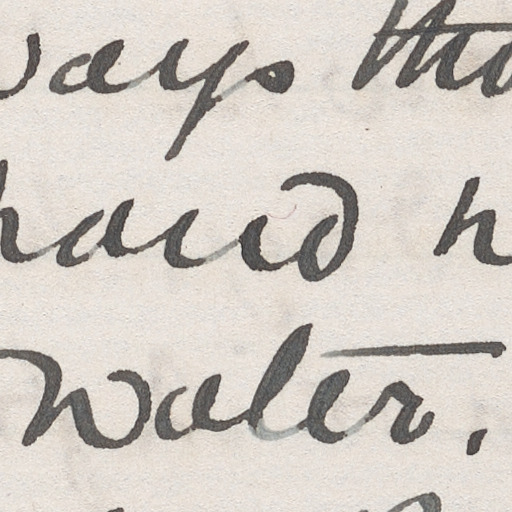 ways tho
hand n
water.